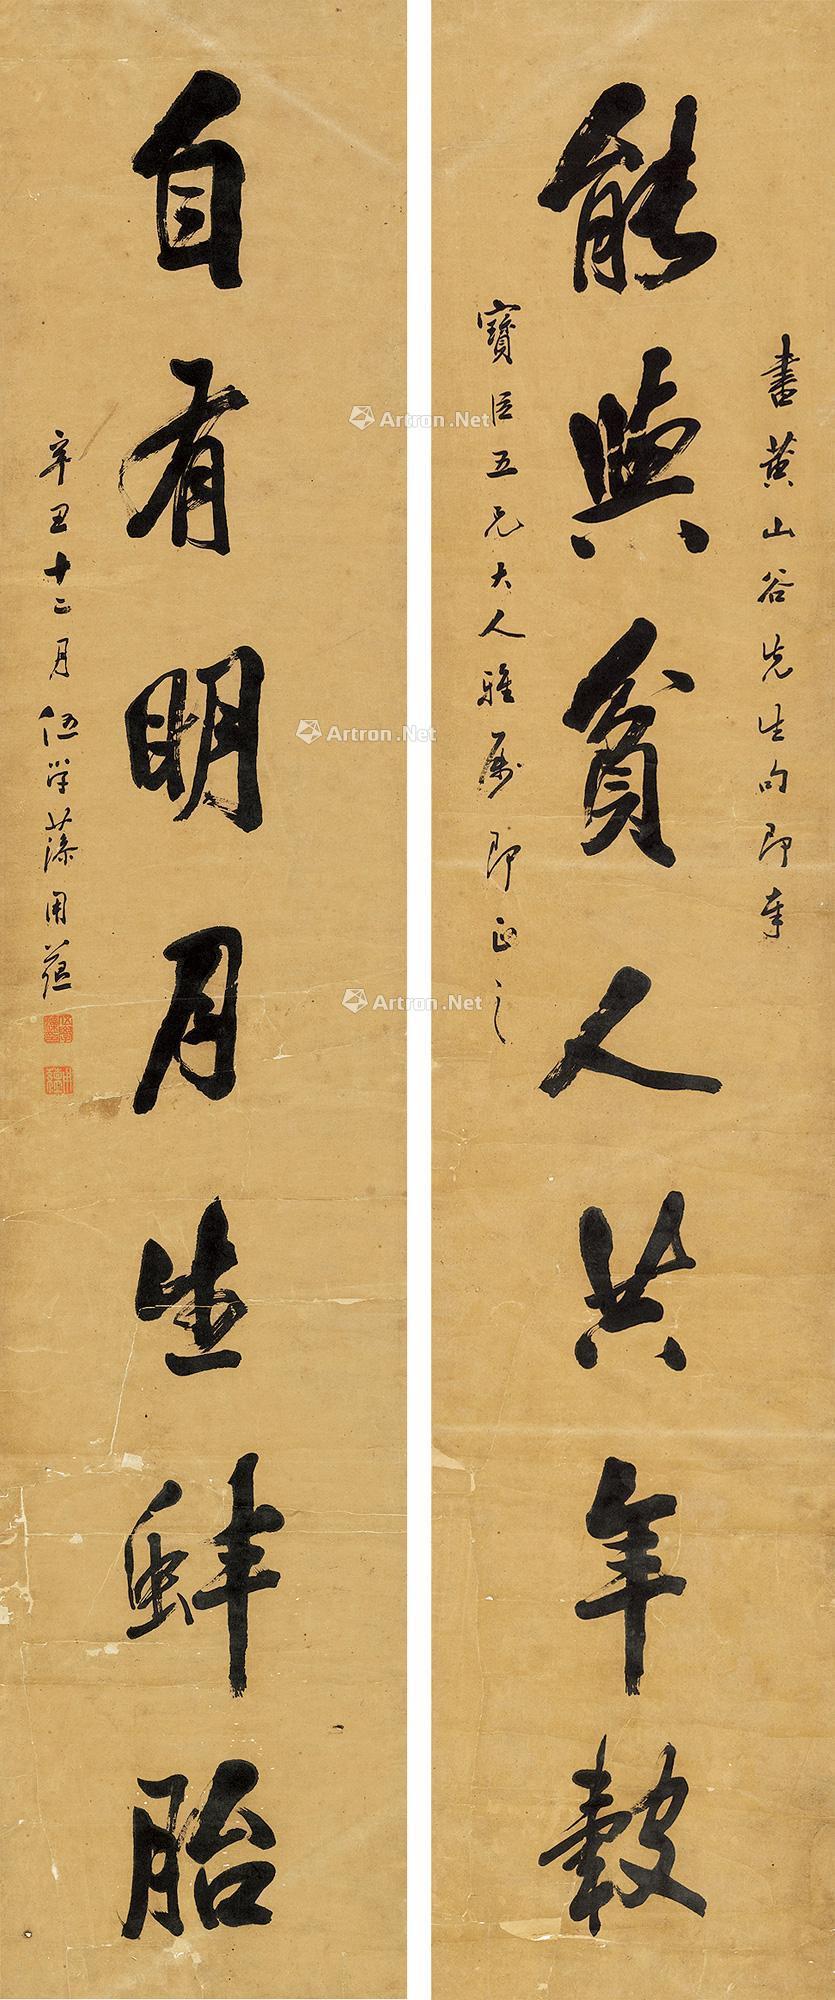 能與貧人共年穀
書黃山谷先生句即奉
寶臣五兄大人雅屬即正之
自有明月生蚌胎
辛丑十二月伍學藻用蘊
Artron.Net
Artron.Net
Artron.Net
Artron.Net